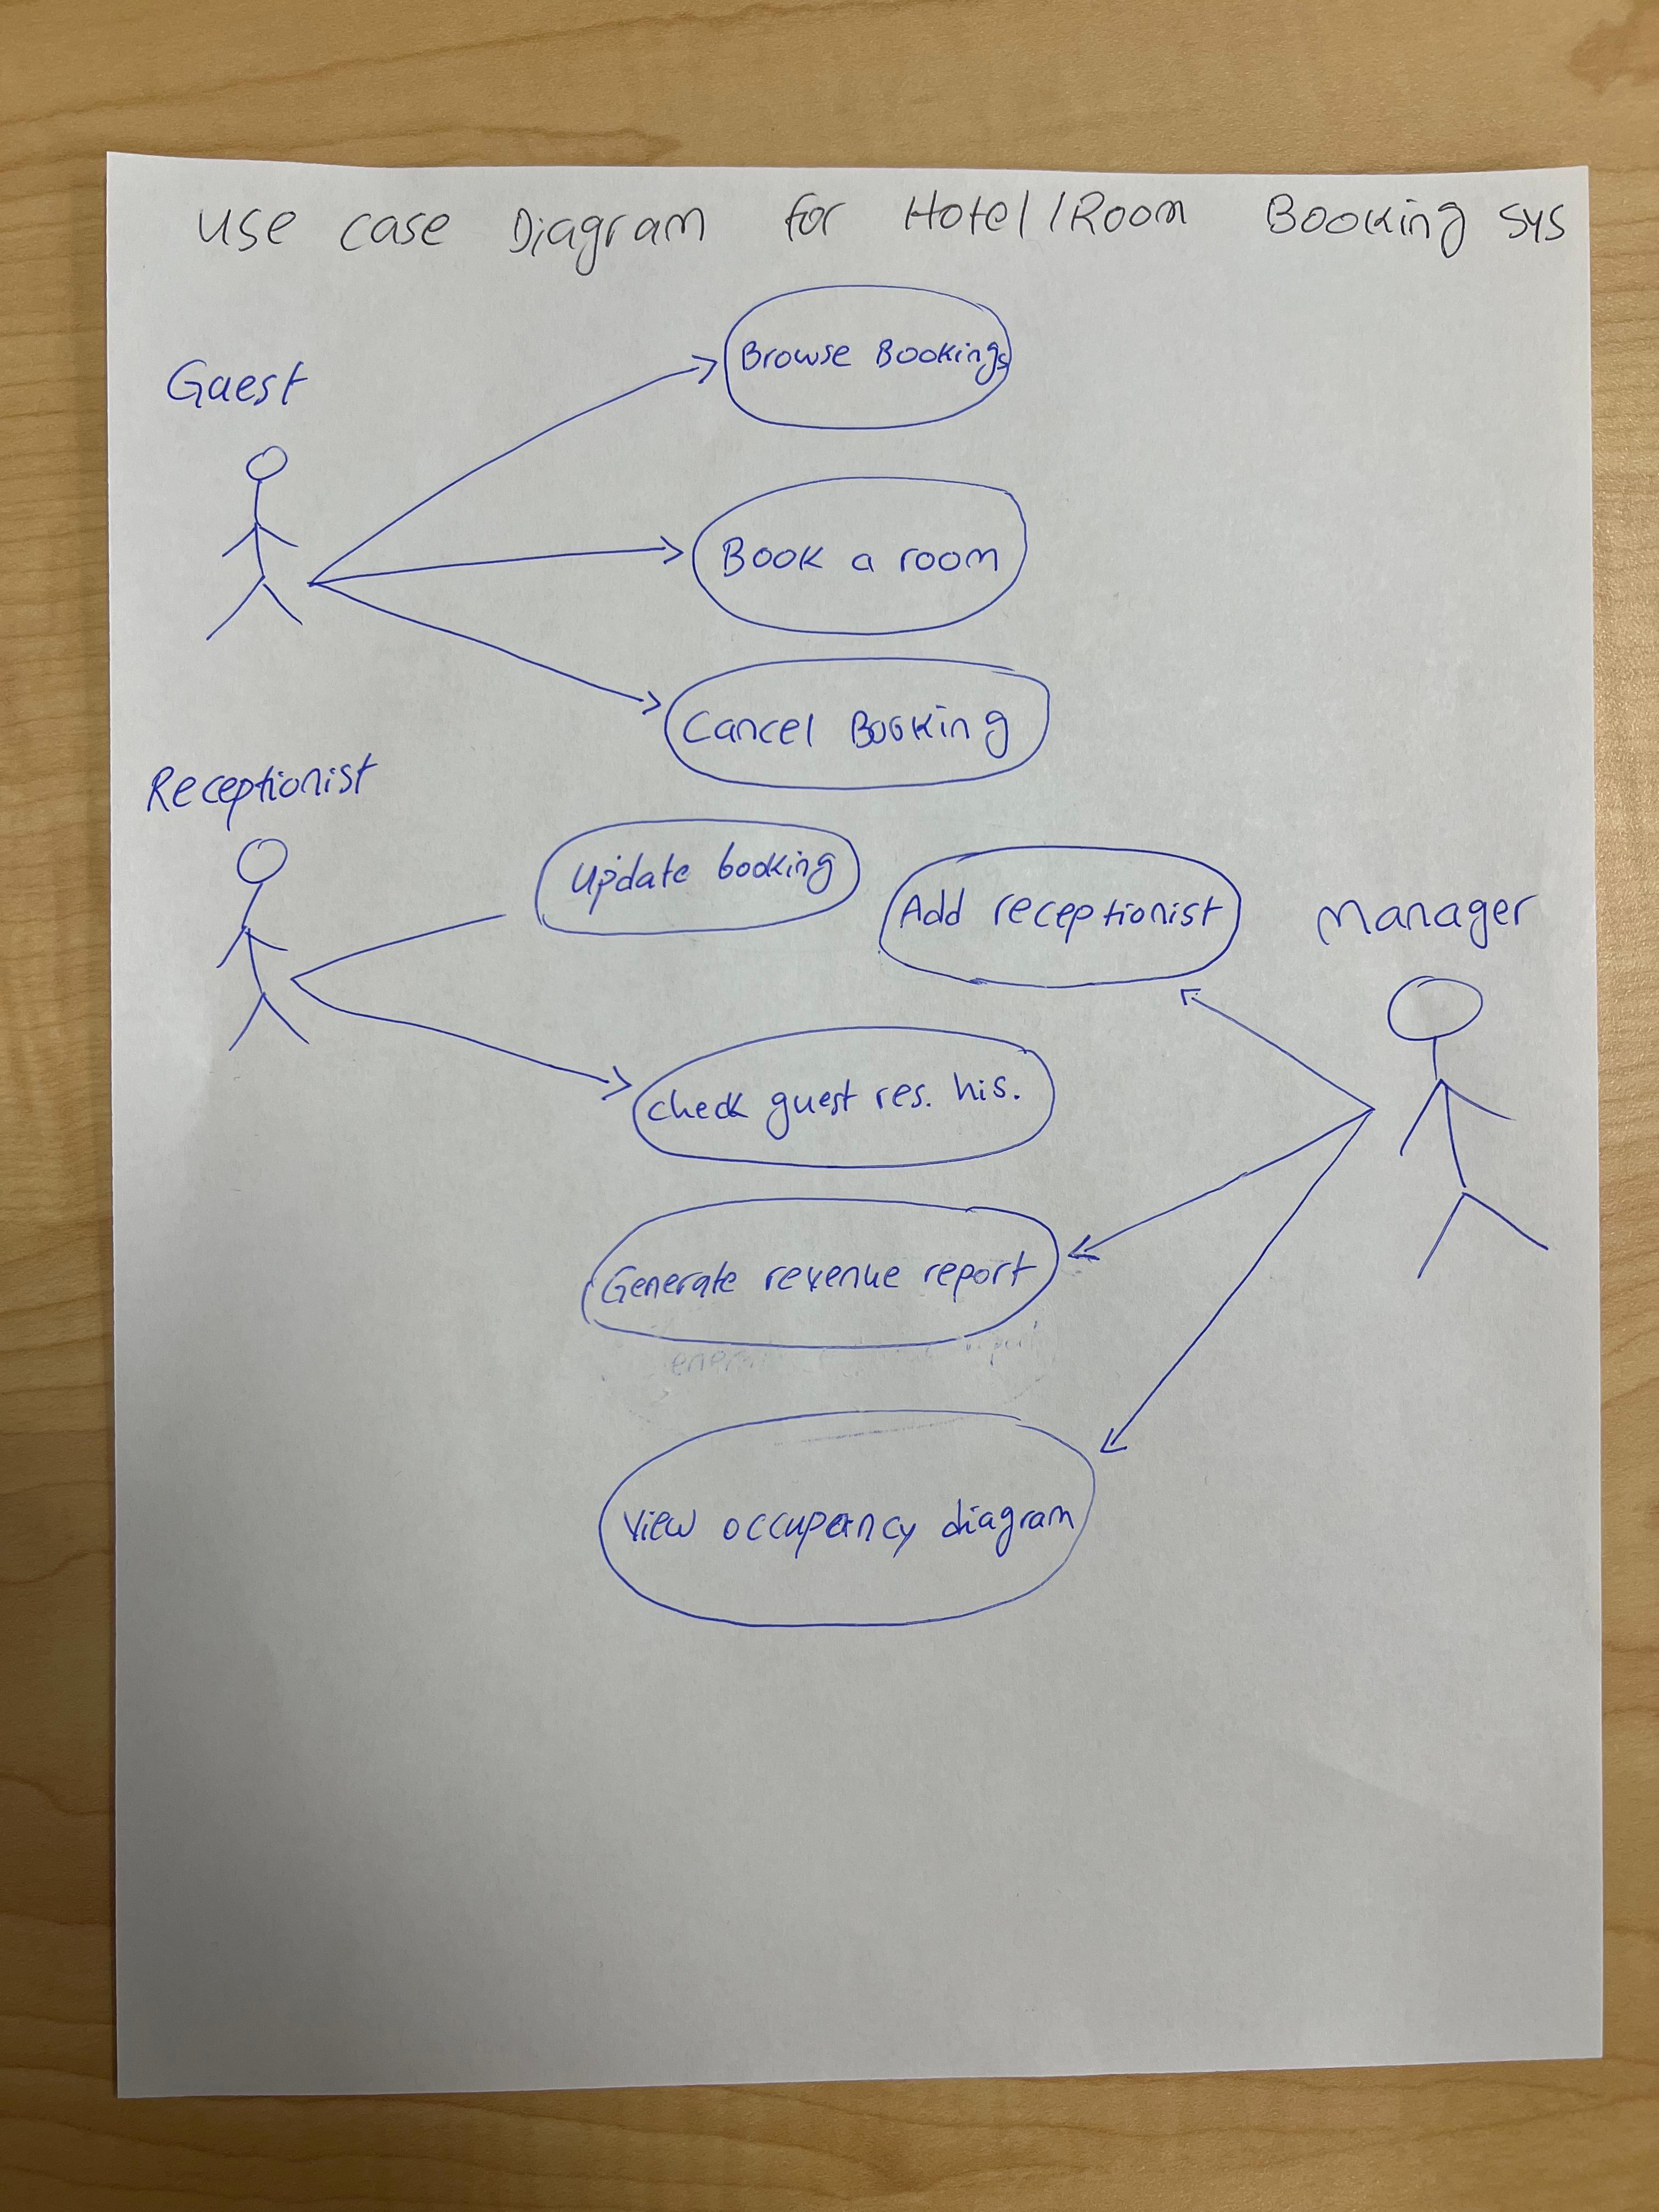 Use case Diagram for Hotel/Room Booking sys
Guest
Browse Bookings
Book a room
Cancel Booking
Receptionist
Update booking
Add receptionist
Manager
check guest res. his.
Generate revenue report
View occupancy diagram